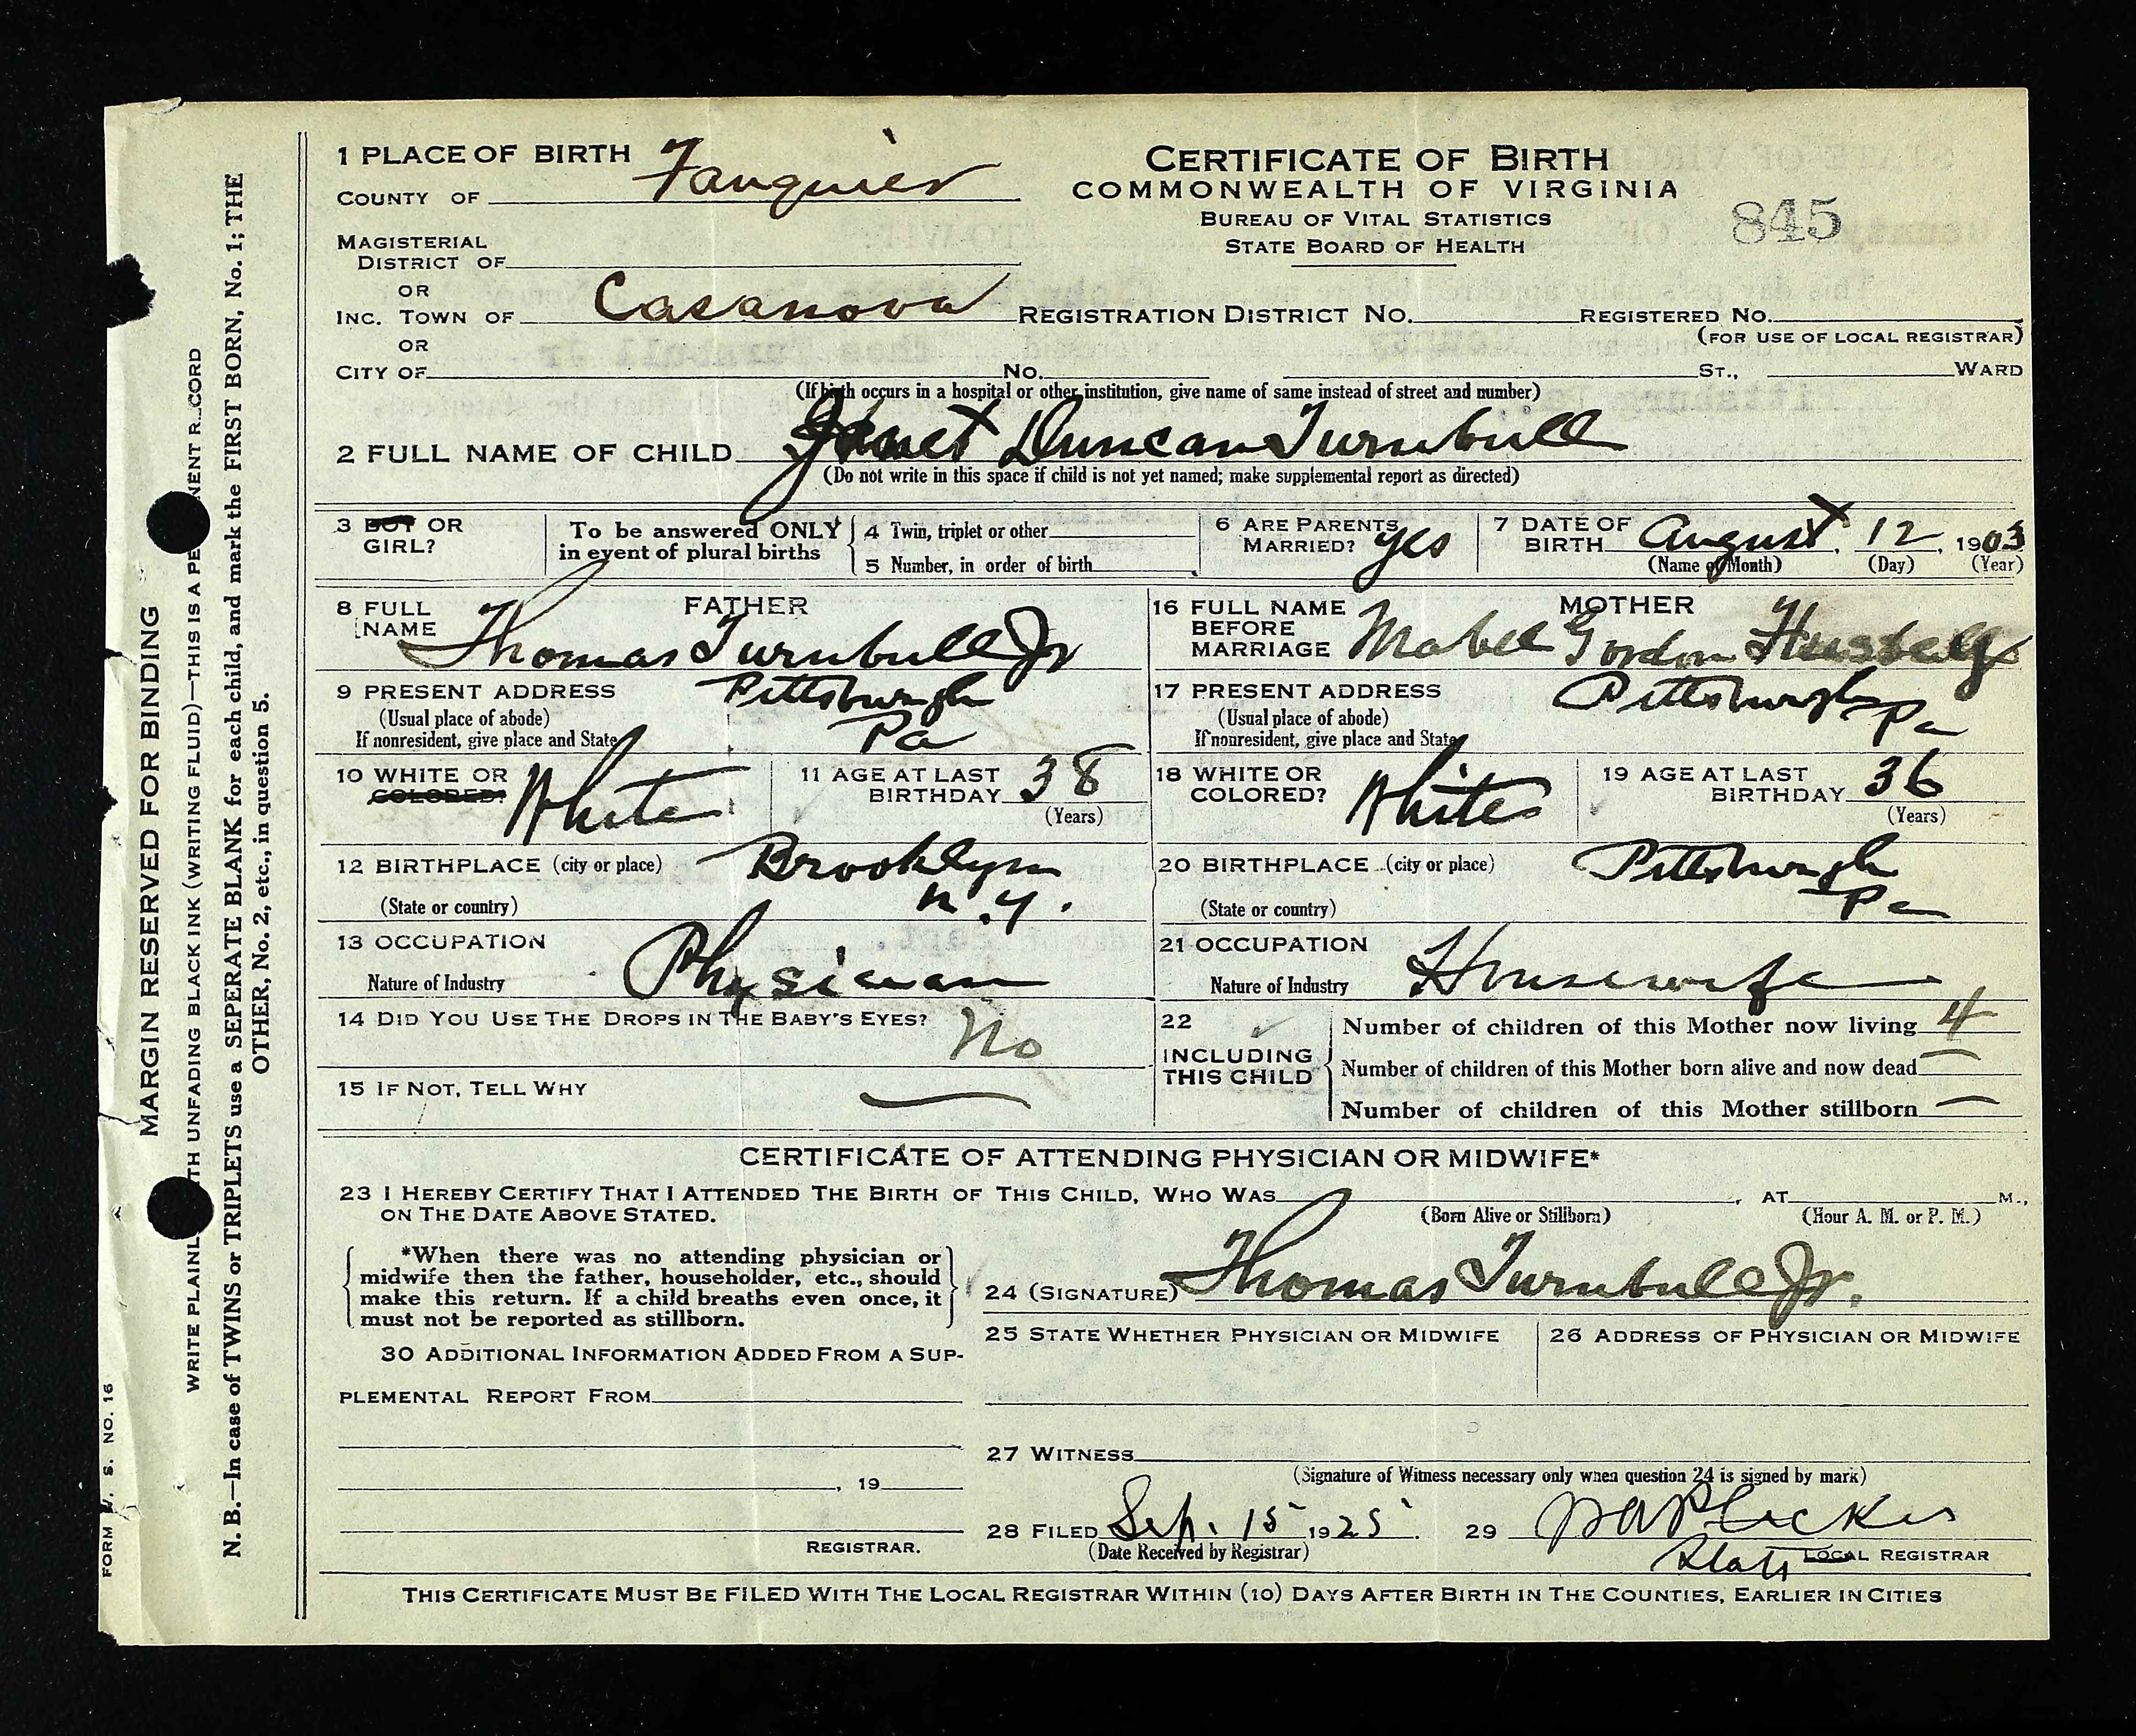 1 PLACE OF BIRTH
COUNTY OF Fauquier
CERTIFICATE OF BIRTH
COMMONWEALTH OF VIRGINIA
BUREAU OF VITAL STATISTICS
STATE BOARD OF HEALTH
845
MAGISTERIAL
DISTRICT OF
OR
INC. TOWN OF Casanova REGISTRATION DISTRICT NO. REGISTERED NO.
(FOR USE OF LOCAL REGISTRAR)
OR
CITY OF No. ST., WARD
(If birth occurs in a hospital or other institution, give name of same instead of street and number)
2 FULL NAME OF CHILD Janet Duncan Turnbull
(Do not write in this space if child is not yet named; make supplemental report as directed)
3 BOY OR
GIRL?
To be answered ONLY
in event of plural births
4 Twin, triplet or other
5 Number, in order of birth
6 ARE PARENTS
MARRIED? yes
7 DATE OF
BIRTH August, 12, 1903
(Name of Month) (Day) (Year)
FATHER
8 FULL
NAME Thomas Turnbull Jr
9 PRESENT ADDRESS Pittsburgh
(Usual place of abode)
If nonresident, give place and State Pa
10 WHITE OR
COLORED? White
11 AGE AT LAST
BIRTHDAY 38
(Years)
12 BIRTHPLACE (city or place) Brooklyn
(State or country) N.Y.
13 OCCUPATION
Nature of Industry Physician
14 DID YOU USE THE DROPS IN THE BABY'S EYES? No
15 IF NOT, TELL WHY —
MOTHER
16 FULL NAME
BEFORE
MARRIAGE Mabel Gordon
17 PRESENT ADDRESS Pittsburgh
(Usual place of abode)
If nonresident, give place and State Pa
18 WHITE OR
COLORED? White
19 AGE AT LAST
BIRTHDAY 36
(Years)
20 BIRTHPLACE (city or place) Pittsburgh
(State or country) Pa
21 OCCUPATION
Nature of Industry Housewife
22
INCLUDING
THIS CHILD
Number of children of this Mother now living 4
Number of children of this Mother born alive and now dead —
Number of children of this Mother stillborn —
CERTIFICATE OF ATTENDING PHYSICIAN OR MIDWIFE*
23 I HEREBY CERTIFY THAT I ATTENDED THE BIRTH OF THIS CHILD, WHO WAS , AT M.,
ON THE DATE ABOVE STATED.
(Born Alive or Stillborn) (Hour A. M. or P. M.)
*When there was no attending physician or
midwife then the father, householder, etc., should
make this return. If a child breaths even once, it
must not be reported as stillborn.
24 (SIGNATURE) Thomas Turnbull Jr.
25 STATE WHETHER PHYSICIAN OR MIDWIFE
26 ADDRESS OF PHYSICIAN OR MIDWIFE
30 ADDITIONAL INFORMATION ADDED FROM A SUP-
PLEMENTAL REPORT FROM
, 19
REGISTRAR.
27 WITNESS
(Signature of Witness necessary only when question 24 is signed by mark)
28 FILED Sep. 15 1925.
(Date Received by Registrar)
29 W A Plecker
State LOCAL REGISTRAR
THIS CERTIFICATE MUST BE FILED WITH THE LOCAL REGISTRAR WITHIN (10) DAYS AFTER BIRTH IN THE COUNTIES, EARLIER IN CITIES
MARGIN RESERVED FOR BINDING
WRITE PLAINL TH UNFADING BLACK INK (WRITING FLUID)—THIS IS A PE NENT R CORD
N. B.—In case of TWINS or TRIPLETS use a SEPERATE BLANK for each child, and mark the FIRST BORN, No. 1; THE
OTHER, No. 2, etc., in question 5.
FORM V. S. NO. 16